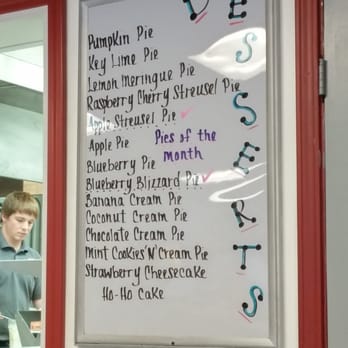 DESSERTS
Pumpkin Pie
Key Lime Pie
Lemon Meringue Pie
Raspberry Cherry Streusel Pie
Apple Streusel Pie
Apple Pie
Pies of the
month
Blueberry Pie
Blueberry Blizzard Pie
Banana Cream Pie
Coconut Cream Pie
Chocolate Cream Pie
Mint Cookies'N'Cream Pie
Strawberry Cheesecake
Ho-Ho Cake